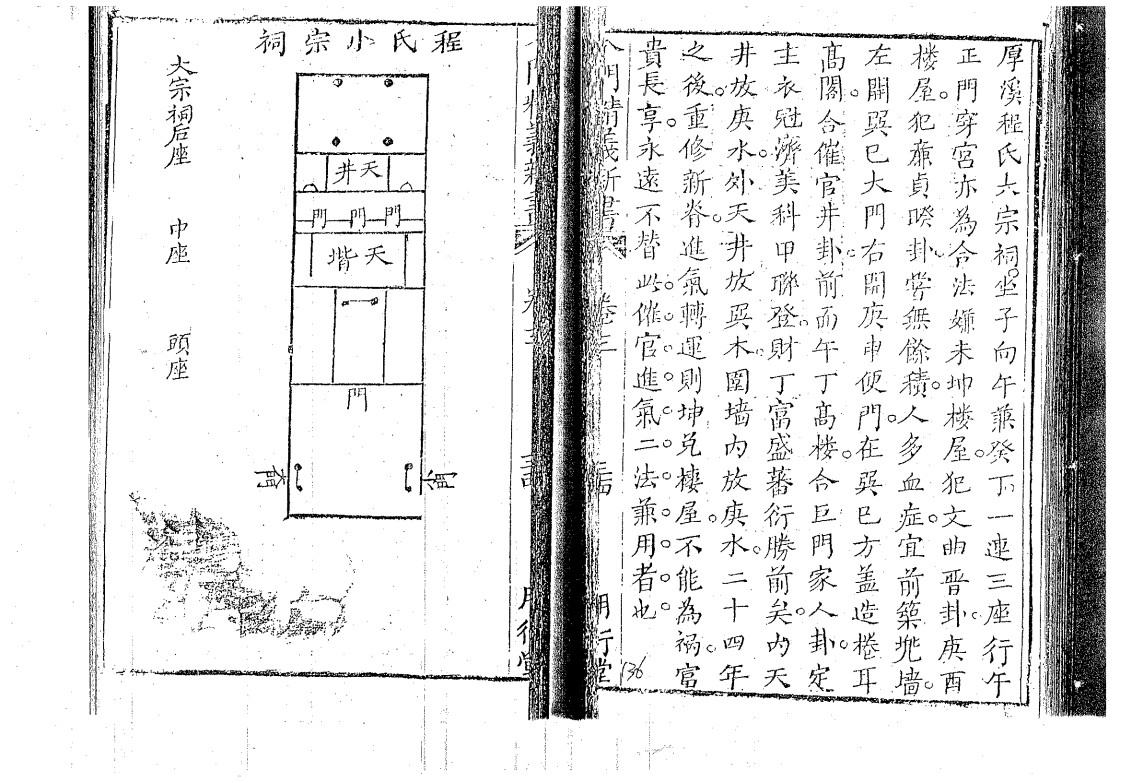 厚溪程氏大宗祠坐子向午兼癸丁一連三座行午
正門穿宮亦為合法嫌未坤楼屋犯文曲晋卦庚酉
楼屋犯廉貞睽卦嘗無餘積人多血症宜前築兠墙
左闢巽巳大門右闢庚申便門在巽巳方盖造捲耳
高閣合催官井卦前面午丁高楼合巨門家人卦定
主衣冠濟美科甲聯登財丁富盛蕃衍勝前矣內天
井放庚水外天井放巽木圍墙內放庚水二十四年
之後重修新脊進氣轉運則坤兑棲屋不能為禍富
貴長享永遠不替此催官進氣二法兼用者也
八門精義新書 卷三 明行堂
136
程氏小宗祠
天井
門 門 門
天堦
門
大宗祠后座
巾座
頭座